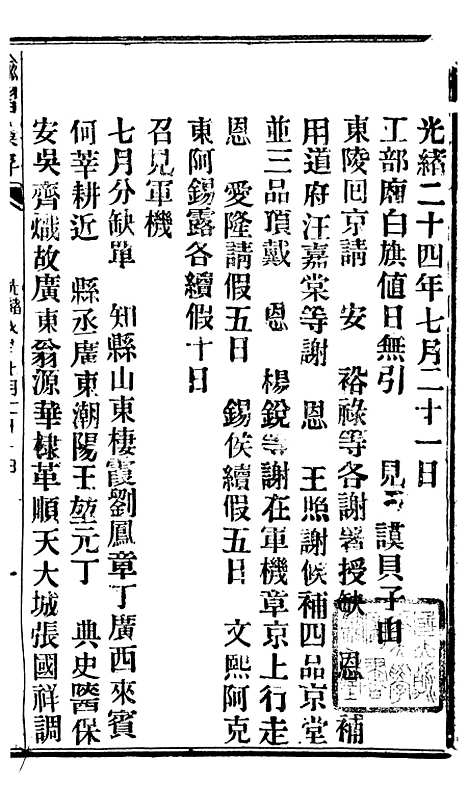 光緒二十四年七月二十一日
工部廂白旗值日無引　見　謨貝子由
東陵回京請　安　裕祿等各謝署授缺　恩　補
用道府汪嘉棠等謝　恩　王照謝候補四品京堂
並三品頂戴　恩　楊銳等謝在軍機章京上行走
恩　愛隆請假五日　錫侯續假五日　文熙阿克
東阿錫露各續假十日
召見軍機
七月分缺單　知縣山東棲霞劉鳳章丁廣西來賓
何莘耕近　縣丞廣東潮陽王堃元丁　典史醫保
安吳齊熾故廣東翁源華棣革順天大城張國祥調